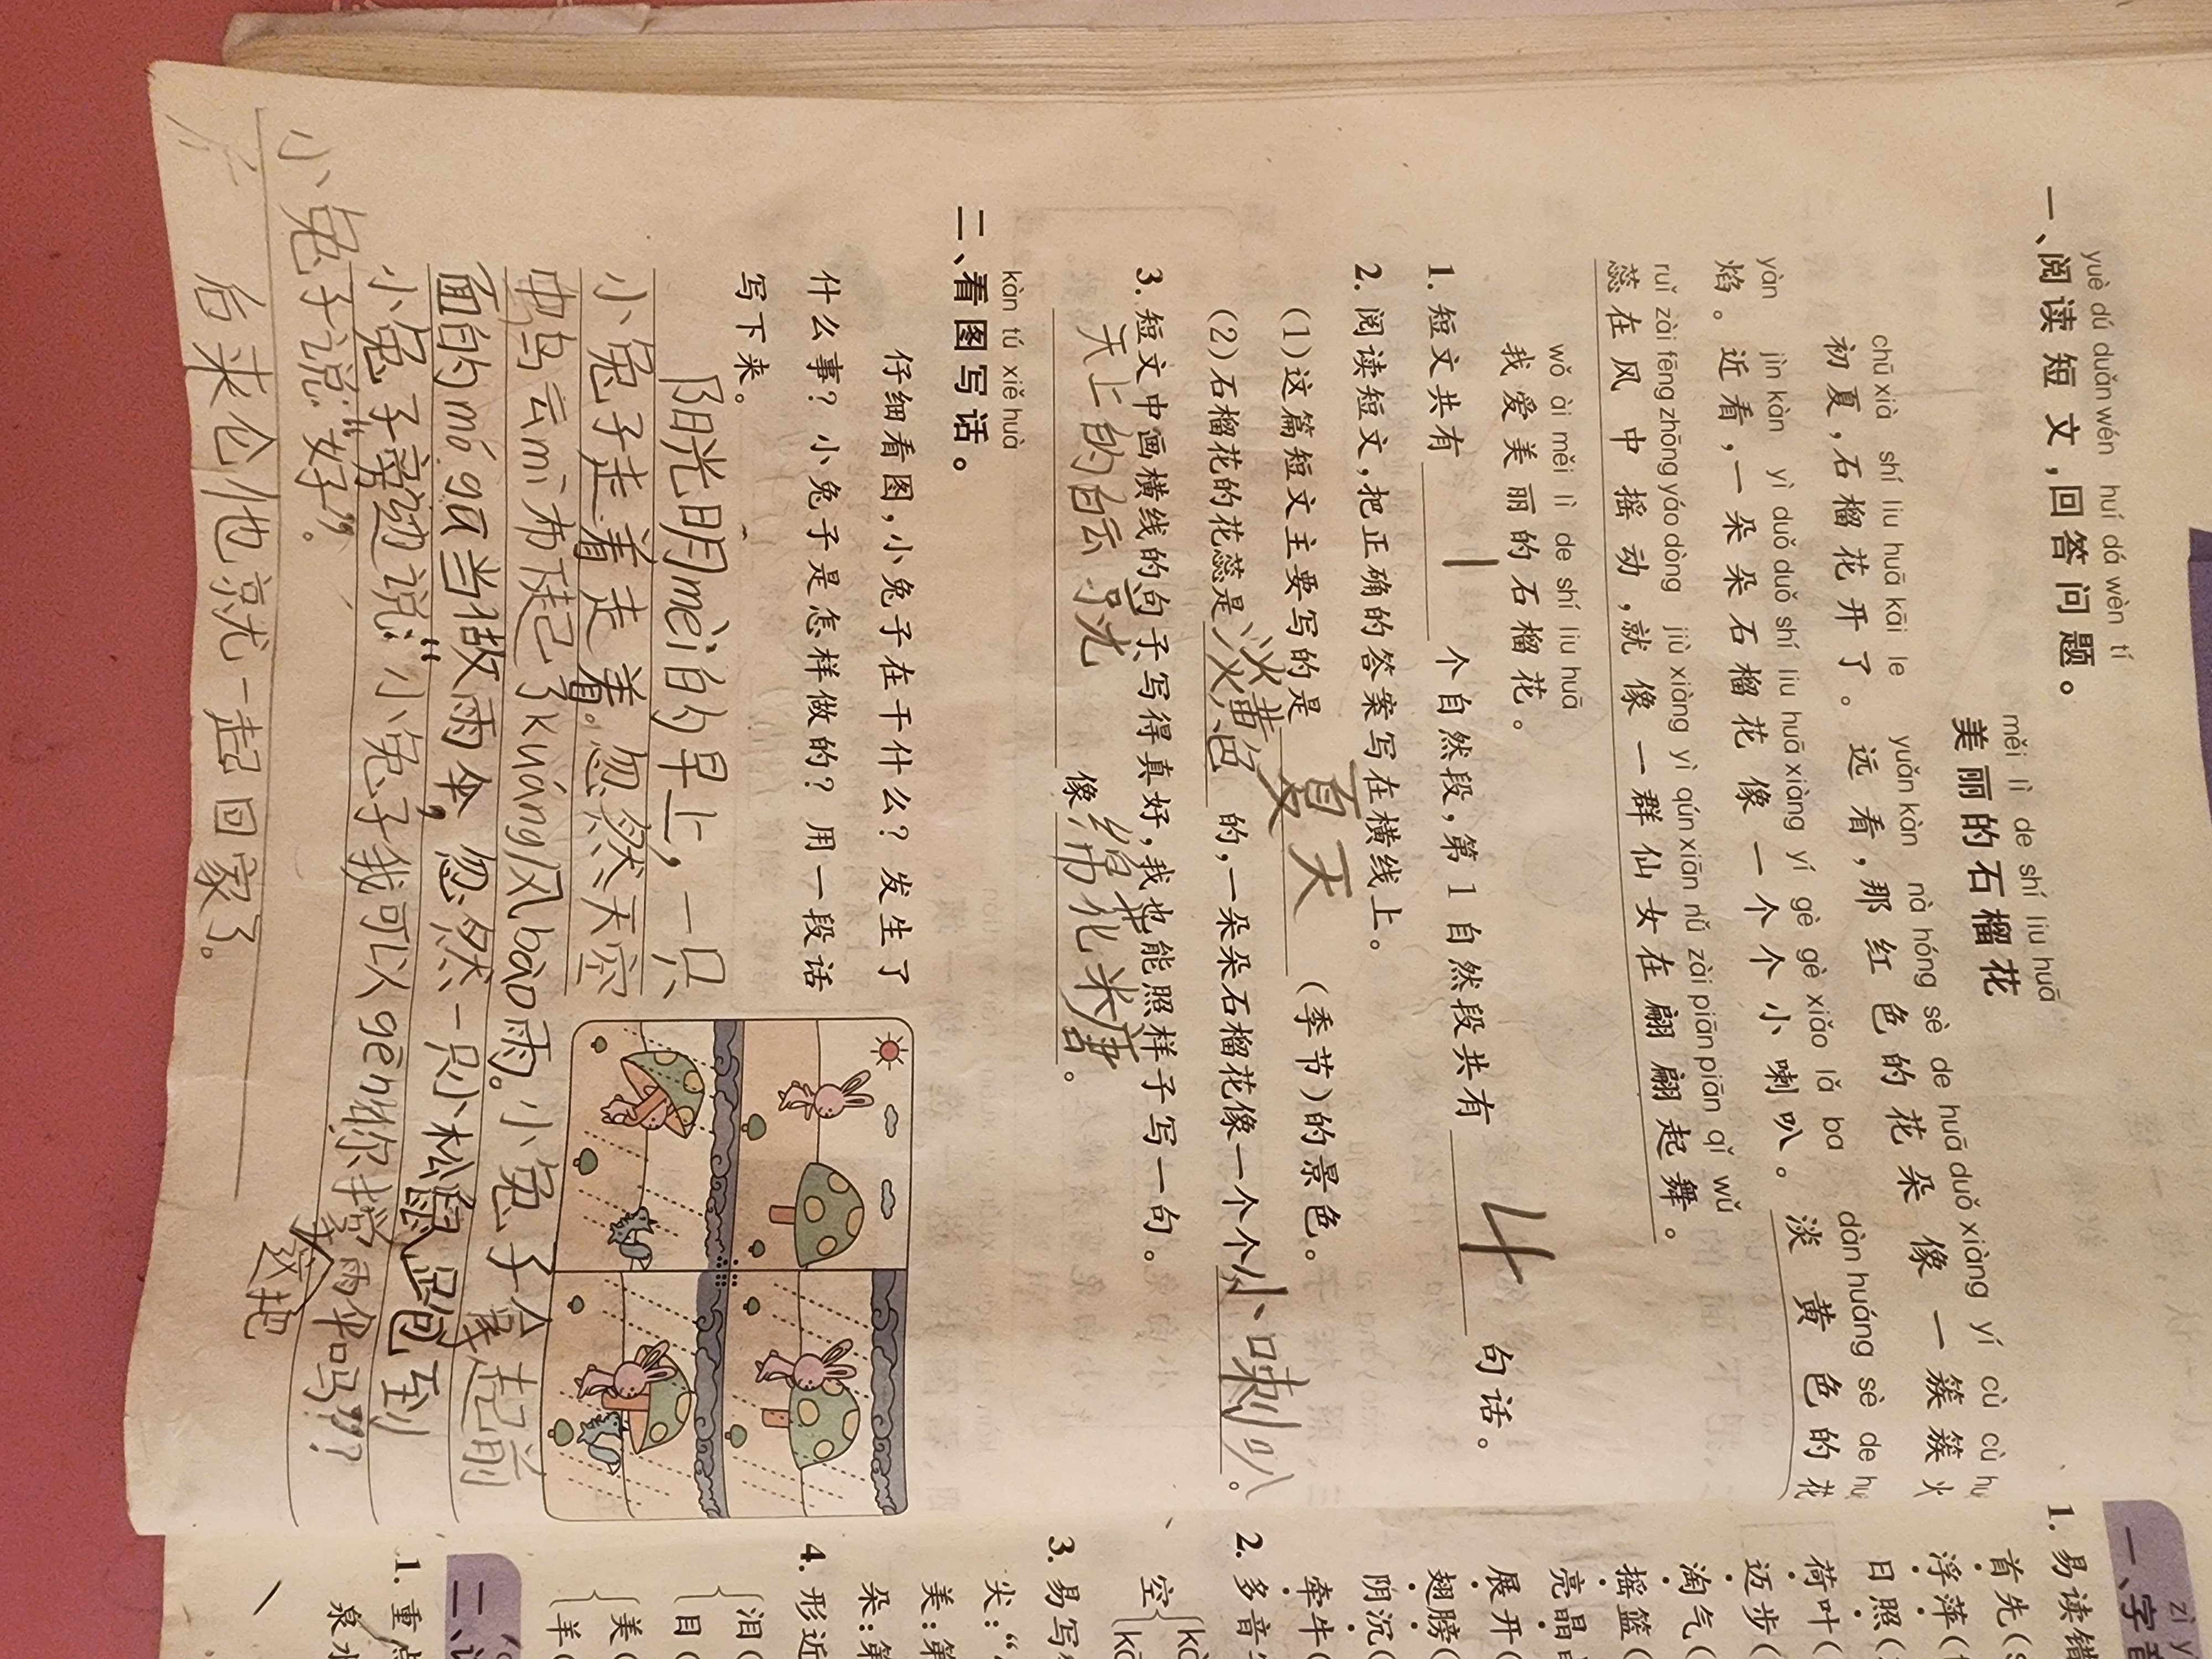 yuè dú duǎn wén huí dá wèn tí
一、阅读短文,回答问题。
měi lì de shí liu huā
美丽的石榴花
chū xià shí liu huā kāi le yuǎn kàn nà hóng sè de huā duǒ xiàng yí cù cù
初夏,石榴花开了。远看,那红色的花朵像一簇簇火
yàn jìn kàn yì duǒ duǒ shí liu huā xiàng yí gè gè xiǎo lǎ ba dàn huáng sè de
焰。近看,一朵朵石榴花像一个个小喇叭。淡黄色的花
ruǐ zài fēng zhōng yáo dòng jiù xiàng yì qún xiān nǚ zài piān piān qǐ wǔ
蕊在风中摇动,就像一群仙女在翩翩起舞。
wǒ ài měi lì de shí liu huā
我爱美丽的石榴花。
1.短文共有 1 个自然段,第1自然段共有 4 句话。
2.阅读短文,把正确的答案写在横线上。
(1)这篇短文主要写的是 夏天 (季节)的景色。
(2)石榴花的花蕊是 淡黄色 的,一朵朵石榴花像一个个 小喇叭。
3.短文中画横线的句子写得真好,我也能照样子写一句。
天上的白云 像 棉花 。
kàn tú xiě huà
二、看图写话。
仔细看图,小兔子在干什么?发生了
什么事?小兔子是怎样做的?用一段话
写下来。
阳光明mèi的早上,一只
小兔子走着走着。忽然天空
中乌云mì布起了kuáng风bào雨。小兔子拿起前
面的mó gu当做雨伞,忽然一只小松鼠跑到
小兔子旁边说:“小兔子我可以gēn你撑雨伞吗”?
小兔子说:“好”。
后来他就一起回家了。
一、字音
1.易读错
首先(
浮萍(
日照(
荷叶(
迈步(
淘气(
摇篮(
亮晶
展开(
翅膀(
阴沉(
牵牛(
2.多音
空
3.易写
尖:“
美:第
朵:第
4.形近
泪(
目(
美(
羊(
1.重点
泉水